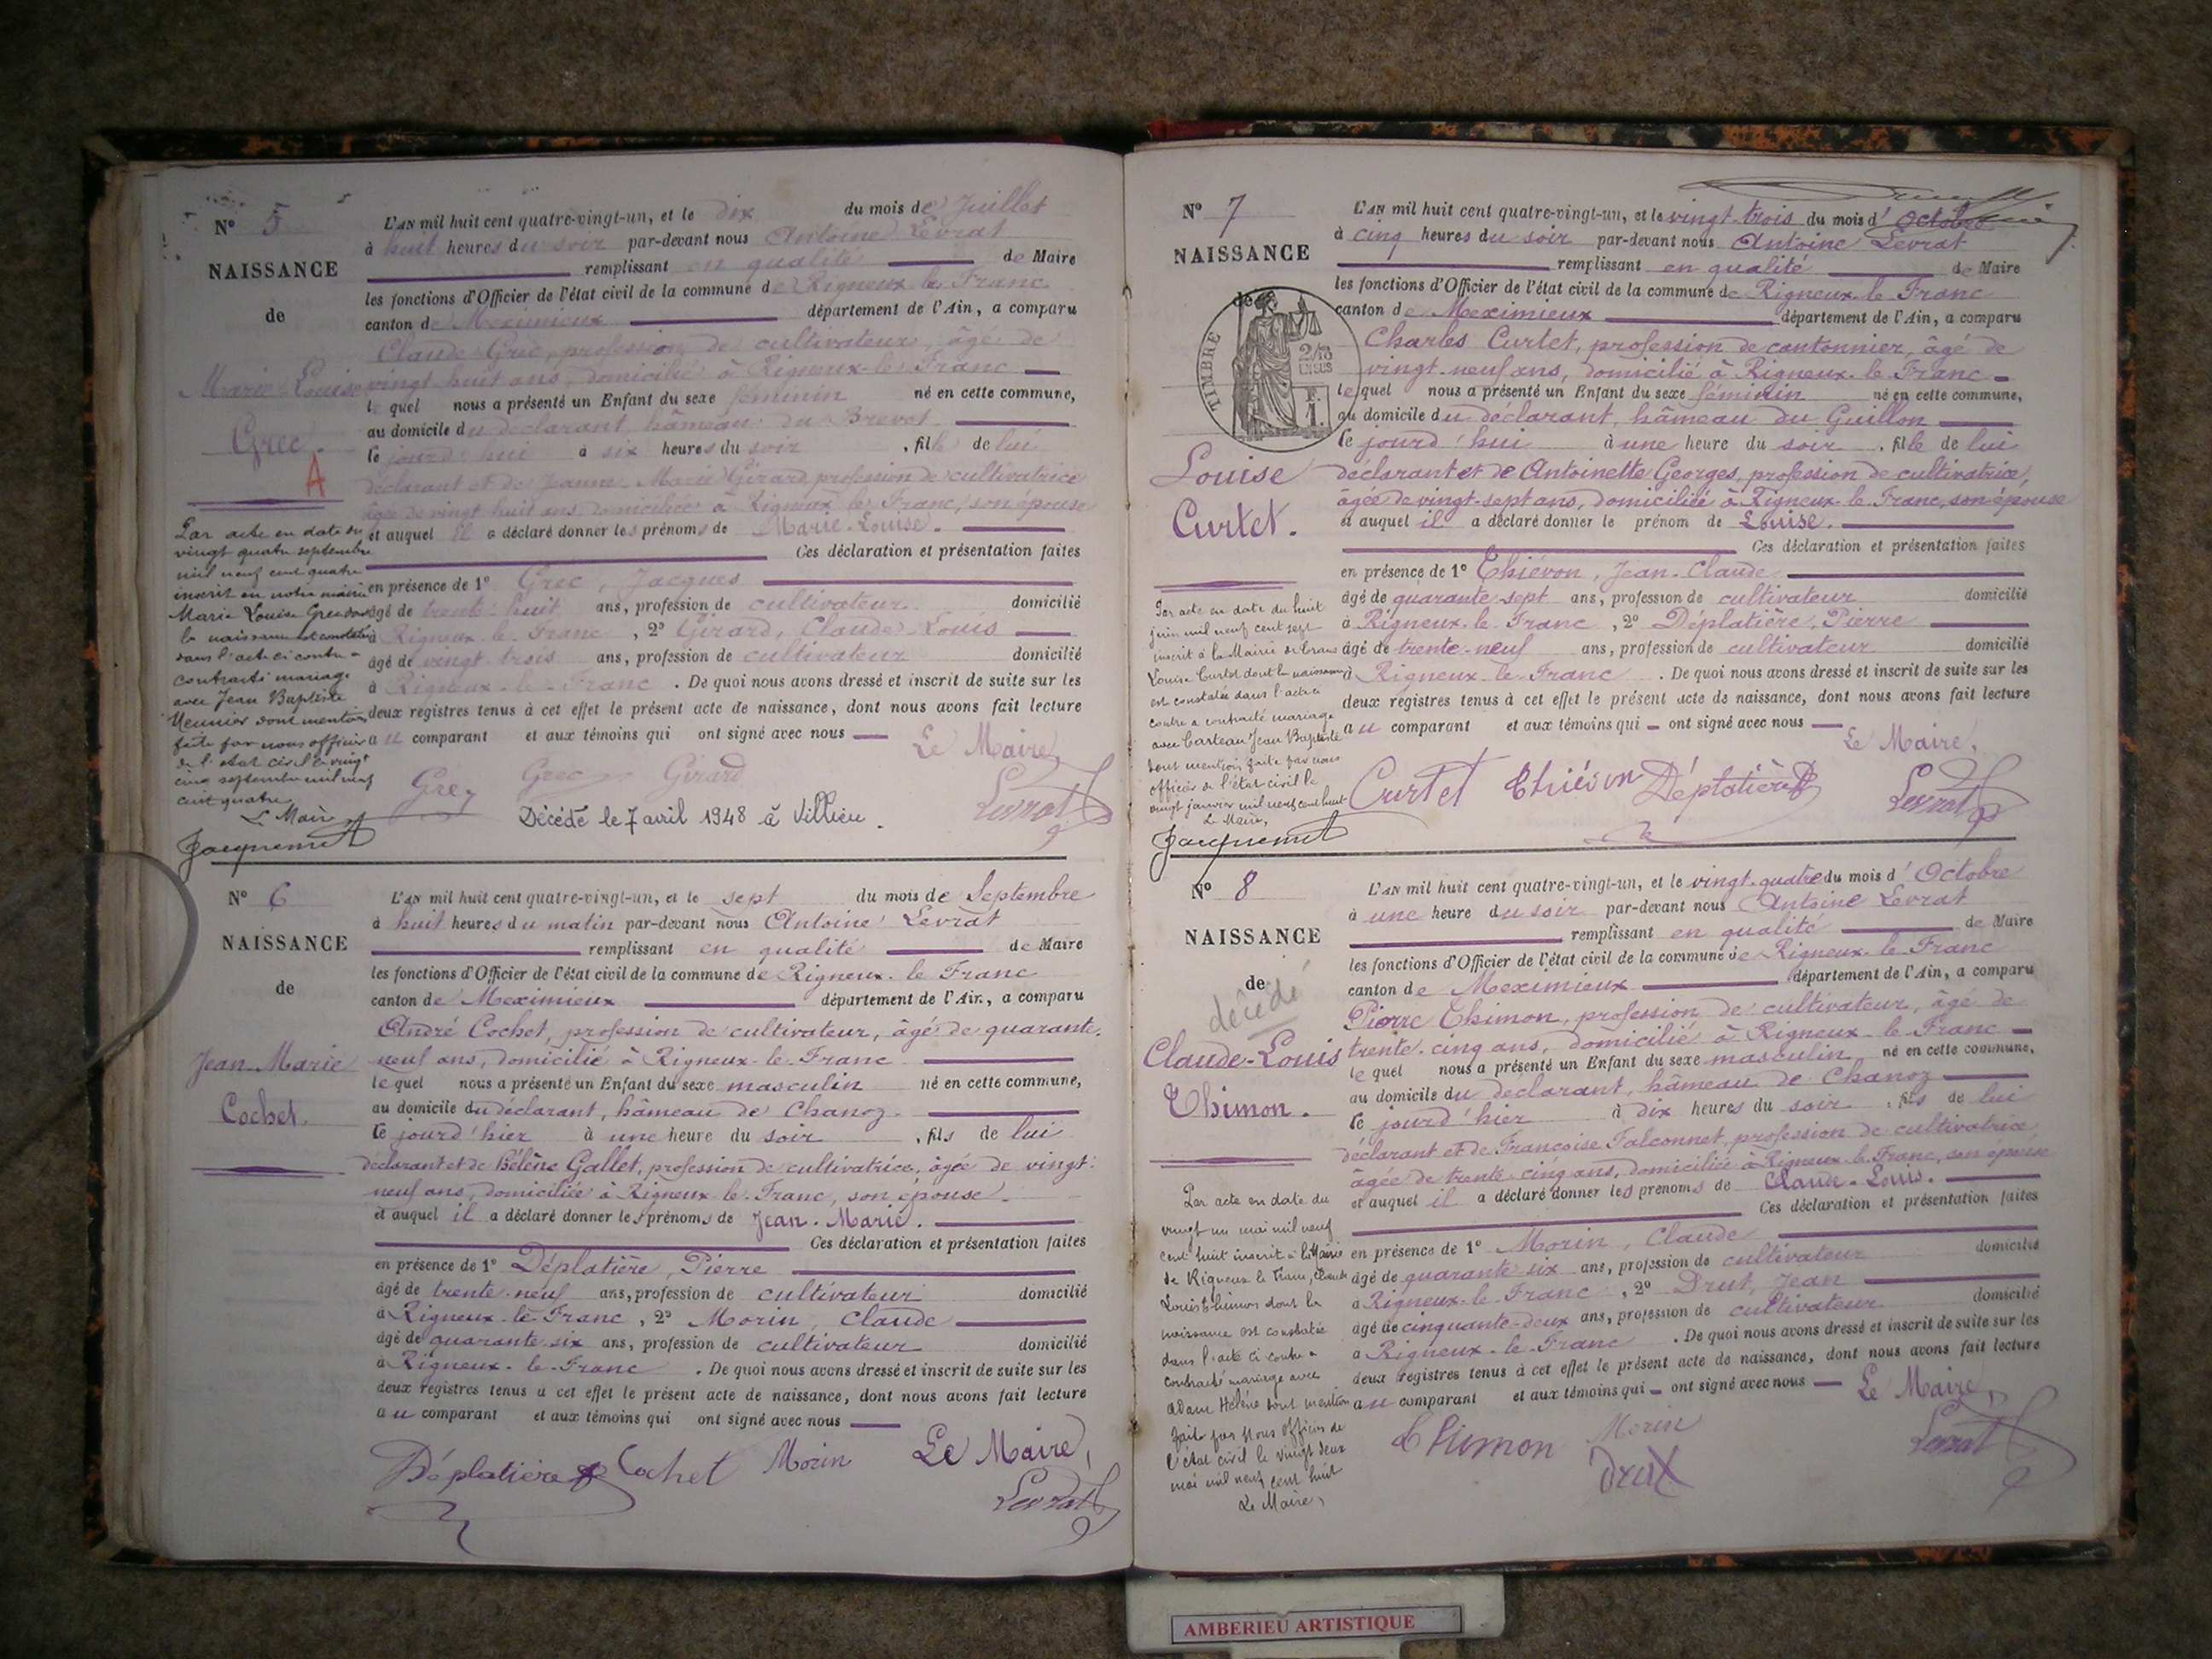 N° 5
NAISSANCE
de
Marie Louise
Grec.
A
L'AN mil huit cent quatre-vingt-un, et le dix du mois de Juillet
à huit heures du soir par-devant nous Antoine Levrat
remplissant en qualité de Maire
les fonctions d'Officier de l'état civil de la commune de Rigneux-le-Franc
canton de Meximieux département de l'Ain, a comparu
Claude Grec, profession de cultivateur, âgé de
vingt huit ans, domicilié à Rigneux-le-Franc
lequel nous a présenté un Enfant du sexe féminin né en cette commune,
au domicile du déclarant hâmeau du Brevet
le jourd'hui à six heures du soir, fille de lui
déclarant et de Jeanne-Marie Girard profession de cultivatrice
âgée de vingt huit ans domiciliée à Rigneux le Franc, son épouse
et auquel il a déclaré donner les prénoms de Marie-Louise.
Ces déclaration et présentation faites
en présence de 1° Grec, Jacques
âgé de trente-huit ans, profession de cultivateur domicilié
à Rigneux-le-Franc, 2° Girard, Claude-Louis
âgé de vingt trois ans, profession de cultivateur domicilié
à Rigneux-le-Franc. De quoi nous avons dressé et inscrit de suite sur les
deux registres tenus à cet effet le présent acte de naissance, dont nous avons fait lecture
au comparant et aux témoins qui ont signé avec nous
Le Maire,
Grec Grec Girard
Levrat
Décédé le 7 avril 1948 à Villieu.
Par acte en date du
vingt quatre septembre
mil neuf cent quatre
inscrit en notre mairie
Marie Louise Grec dont
la naissance est constatée
dans l'acte ci contre a
contracté mariage
avec Jean Baptiste
Meunier dont mention
faite par nous officier
de l'état civil le vingt
cinq septembre mil neuf
cent quatre
Le Maire
Jacquemet
N° 6
NAISSANCE
de
Jean-Marie
Cochet.
L'AN mil huit cent quatre-vingt-un, et le sept du mois de Septembre
à huit heures du matin par-devant nous Antoine Levrat
remplissant en qualité de Maire
les fonctions d'Officier de l'état civil de la commune de Rigneux-le-Franc
canton de Meximieux département de l'Ain, a comparu
André Cochet, profession de cultivateur, âgé de quarante-
neuf ans, domicilié à Rigneux-le-Franc
lequel nous a présenté un Enfant du sexe masculin né en cette commune,
au domicile du déclarant, hâmeau de Chanoz.
le jourd'hier à une heure du soir, fils de lui
déclarant et de Hélène Gallet, profession de cultivatrice, âgée de vingt-
neuf ans, domiciliée à Rigneux-le-Franc, son épouse.
et auquel il a déclaré donner les prénoms de Jean-Marie.
Ces déclaration et présentation faites
en présence de 1° Déplatière, Pierre
âgé de trente-neuf ans, profession de cultivateur domicilié
à Rigneux-le-Franc, 2° Morin, Claude
âgé de quarante-six ans, profession de cultivateur domicilié
à Rigneux-le-Franc. De quoi nous avons dressé et inscrit de suite sur les
deux registres tenus à cet effet le présent acte de naissance, dont nous avons fait lecture
au comparant et aux témoins qui ont signé avec nous
Déplatière Cochet Morin Le Maire,
Levrat
N° 7
NAISSANCE
de
TIMBRE
2/10 EN SUS
Louise
Curtet.
L'AN mil huit cent quatre-vingt-un, et le vingt-trois du mois d'Octobre
à cinq heures du soir par-devant nous Antoine Levrat
remplissant en qualité de Maire
les fonctions d'Officier de l'état civil de la commune de Rigneux-le-Franc
canton de Meximieux département de l'Ain, a comparu
Charles Curtet, profession de cantonnier, âgé de
vingt-neuf ans, domicilié à Rigneux-le-Franc
lequel nous a présenté un Enfant du sexe féminin né en cette commune,
au domicile du déclarant, hâmeau du Guillon
le jourd'hui à une heure du soir, fille de lui
déclarant et de Antoinette Georges, profession de cultivatrice,
âgée de vingt-sept ans, domiciliée à Rigneux-le-Franc, son épouse
et auquel il a déclaré donner le prénom de Louise.
Ces déclaration et présentation faites
en présence de 1° Thiévon, Jean-Claude
âgé de quarante-sept ans, profession de cultivateur domicilié
à Rigneux-le-Franc, 2° Déplatière, Pierre
âgé de trente-neuf ans, profession de cultivateur domicilié
à Rigneux-le-Franc. De quoi nous avons dressé et inscrit de suite sur les
deux registres tenus à cet effet le présent acte de naissance, dont nous avons fait lecture
au comparant et aux témoins qui ont signé avec nous
Le Maire,
Curtet Thiévon Déplatière Levrat
Par acte en date du huit
juin mil neuf cent sept
inscrit à la Mairie de
Louise Curtet dont la naissance
est constatée dans l'acte ci
contre a contracté mariage
avec Carteau Jean Baptiste
dont mention faite par nous
officier de l'état civil le
vingt janvier mil neuf cent huit
Le Maire,
Jacquemet
N° 8
NAISSANCE
de
décédé
Claude-Louis
Thimon.
L'AN mil huit cent quatre-vingt-un, et le vingt-quatre du mois d'Octobre
à une heure du soir par-devant nous Antoine Levrat
remplissant en qualité de Maire
les fonctions d'Officier de l'état civil de la commune de Rigneux-le-Franc
canton de Meximieux département de l'Ain, a comparu
Pierre Thimon, profession de cultivateur, âgé de
trente-cinq ans, domicilié à Rigneux-le-Franc
lequel nous a présenté un Enfant du sexe masculin né en cette commune,
au domicile du déclarant, hâmeau de Chanoz
le jourd'hier à dix heures du soir, fils de lui
déclarant et de Françoise Falconnet, profession de cultivatrice
âgée de trente-cinq ans, domiciliée à Rigneux-le-Franc, son épouse
et auquel il a déclaré donner les prénoms de Claude-Louis.
Ces déclaration et présentation faites
en présence de 1° Morin, Claude
âgé de quarante-six ans, profession de cultivateur domicilié
à Rigneux-le-Franc, 2° Drut, Jean
âgé de cinquante-deux ans, profession de cultivateur domicilié
à Rigneux-le-Franc. De quoi nous avons dressé et inscrit de suite sur les
deux registres tenus à cet effet le présent acte de naissance, dont nous avons fait lecture
au comparant et aux témoins qui ont signé avec nous Le Maire,
Thimon Morin Levrat
Drut
Par acte en date du
vingt un mai mil neuf
cent huit inscrit à la Mairie
de Rigneux le Franc, Claude
Louis Thimon dont la
naissance est constatée
dans l'acte ci contre a
contracté mariage avec
Adam Hélène dont mention
faite par Nous Officier de
l'état civil le vingt deux
mai mil neuf cent huit
Le Maire,
AMBERIEU ARTISTIQUE